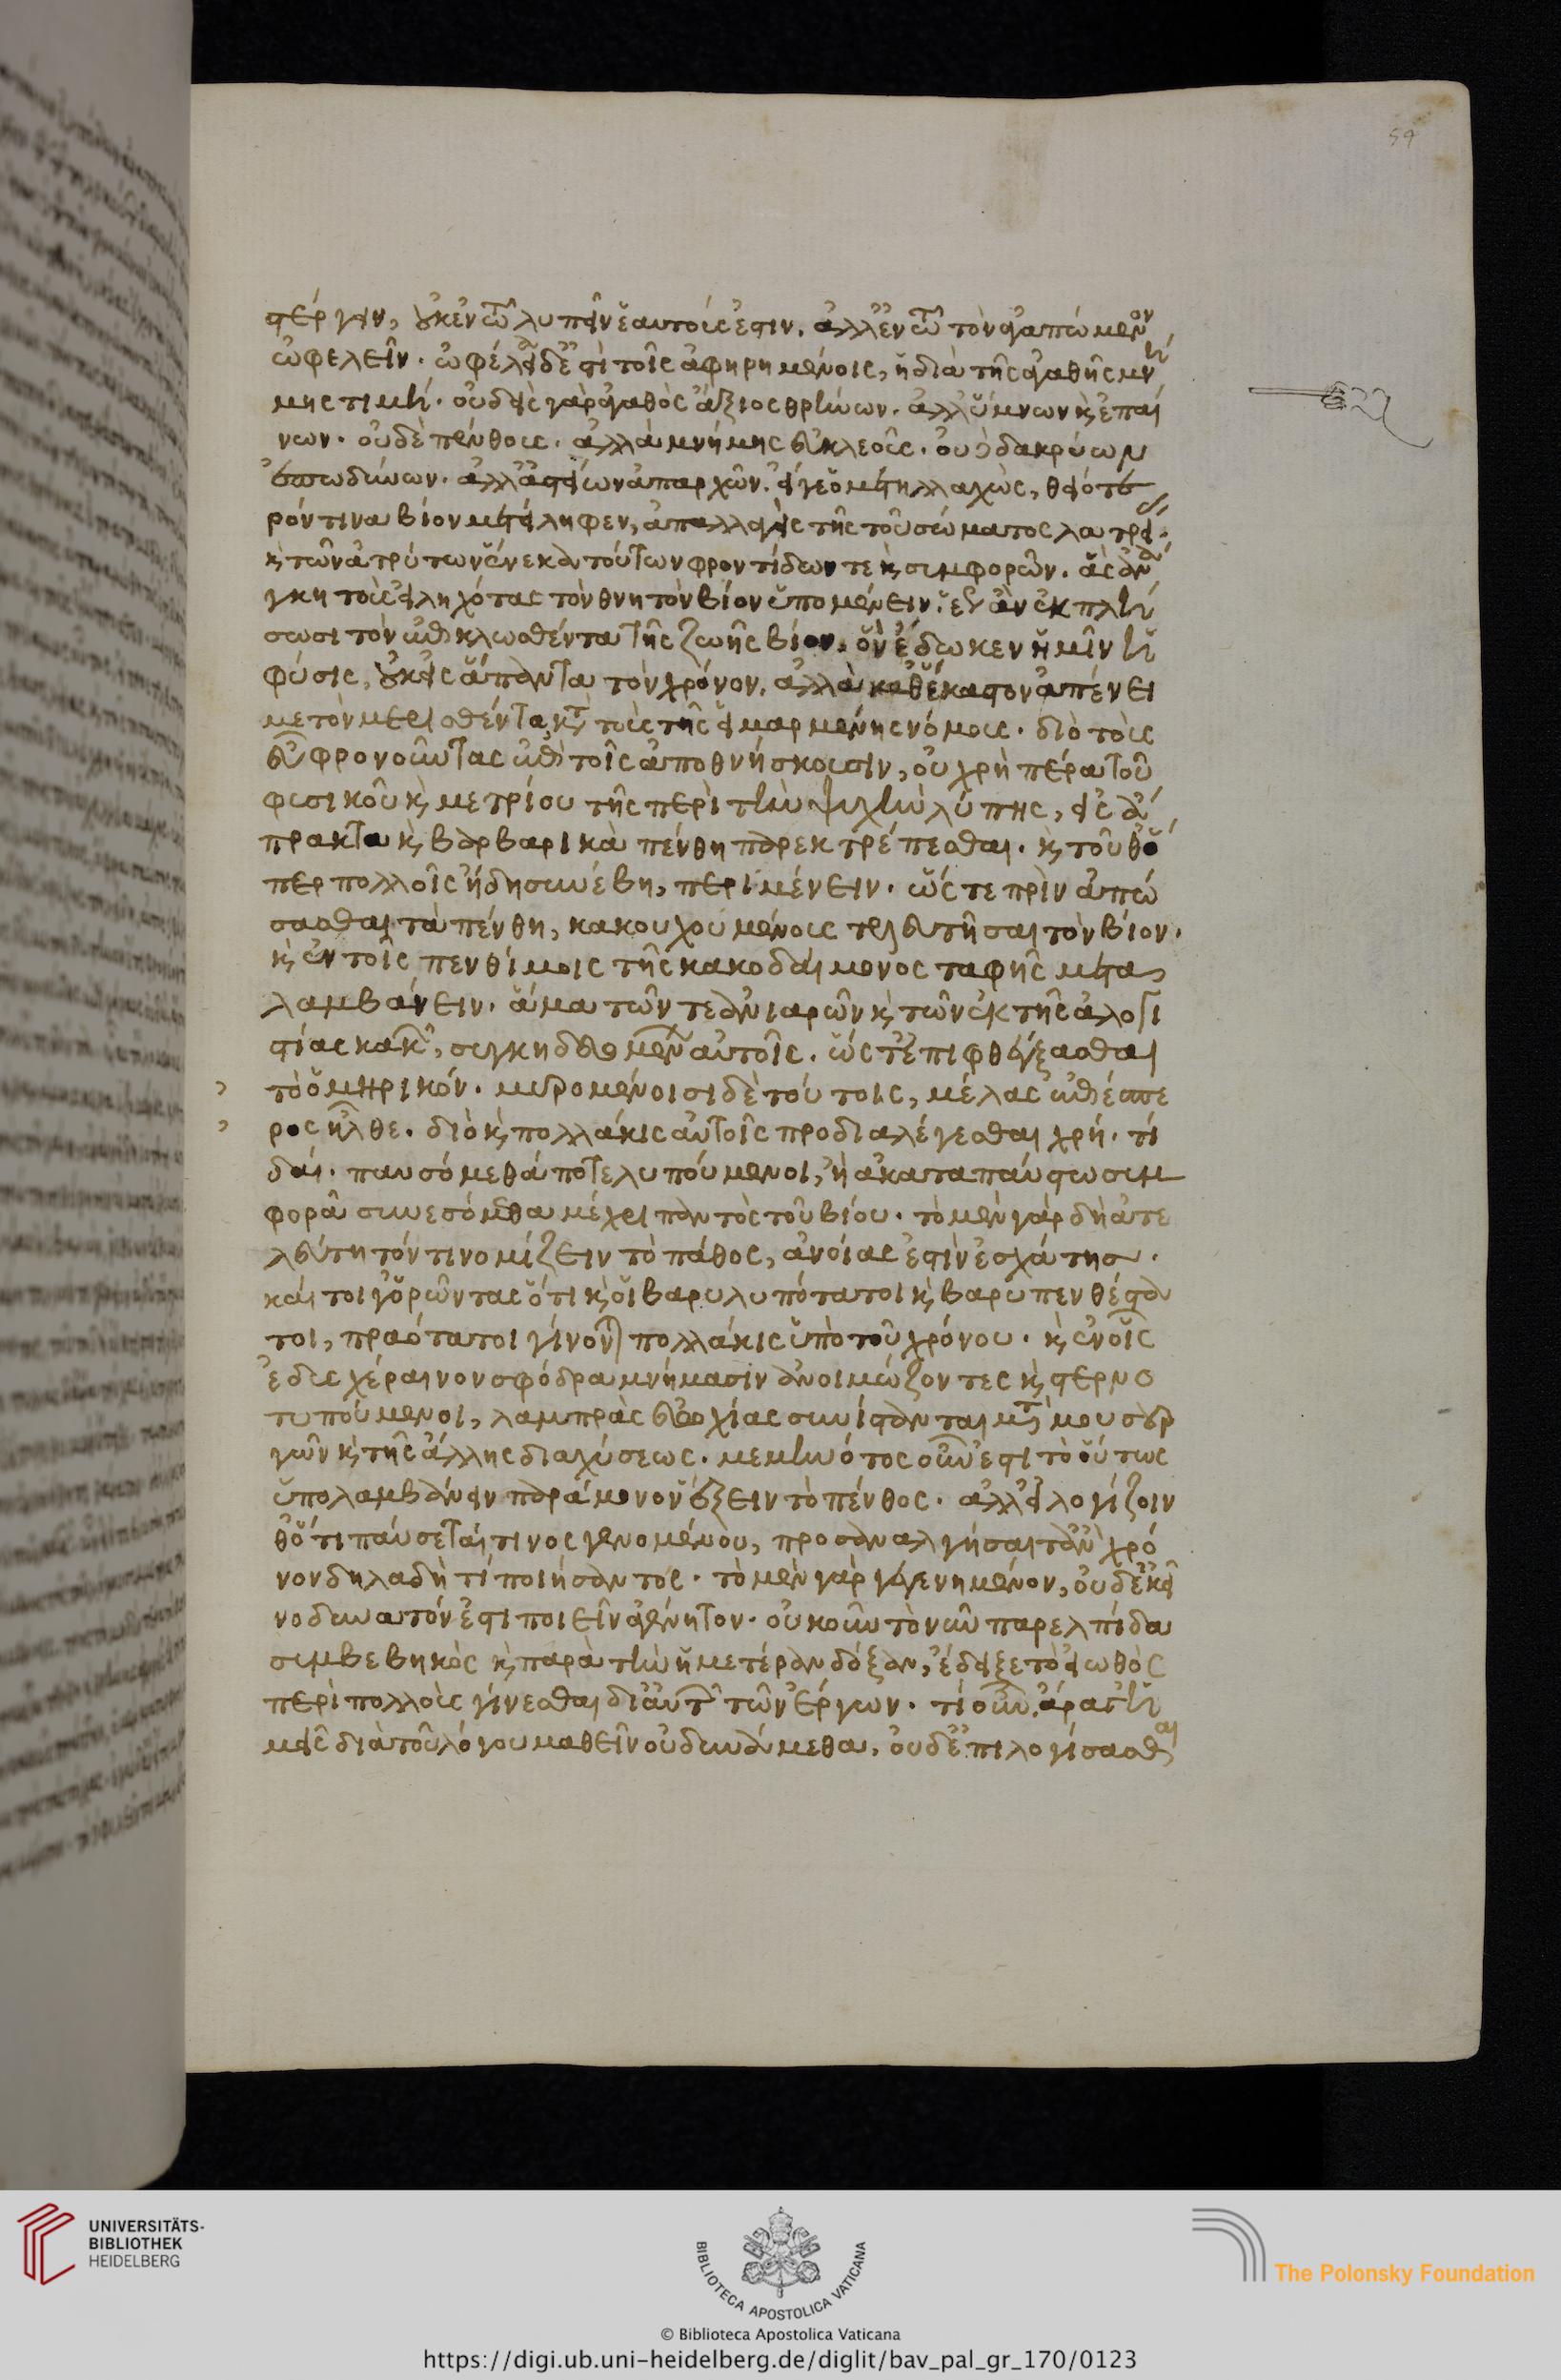 στέργειν, οὐκ ἐν τῶ λυπεῖν ἑαυτούς ἐστιν. ἀλλ' ἐν τῶ τὸν ἀγαπώμενον
ὠφελεῖν. ὠφέλεια δ' ἐστὶ τοῖς ἀφηρημένοις, ἡ διὰ τῆς ἀγαθῆς μνή
μης τιμή. οὐδεὶς γὰρ ἀγαθὸς ἄξιος θρήνων. ἀλλ' ὕμνων κ̀ ἐπαί
νων. οὐδὲ πένθους. ἀλλὰ μνήμης εὐκλεοῦς. οὐδὲ δακρύων
ἐπωδύνων. ἀλλ' ἀστείων ἀπαρχῶν. εἴ γε ὁ μετηλλαχὼς, θειότε
ρόν τινα βίον μετείληφεν, ἀπαλλαγεὶς τῆς τοῦ σώματος λατρεί
κ̀ τῶν ἀτρύτων ἕνεκα τούτων φροντίδων τε κ̀ συμφορῶν. ἃς ἀνά
γκη τοὺς εἰληχότας τὸν θνητὸν βίον ὑπομένειν. ἕως ἂν ἐκπλή
σωσι τὸν ἐπικλωσθέντα τῆς ζωῆς βίον. ὃν ἔδωκεν ἡμῖν ἡ
φύσις, οὐκ εἰς ἅπαντα τὸν χρόνον. ἀλλὰ καθ' ἕκαστον ἀπένει
με τὸν μερισθέντα κατὰ τοὺς τῆς εἱμαρμένης νόμους. διὸ τοὺς
εὖ φρονοῦντας ἐπὶ τοῖς ἀποθνήσκουσιν, οὐ χρὴ πέρα τοῦ
φυσικοῦ κ̀ μετρίου τῆς περὶ τὴν ψυχὴν λύπης, εἰς ἄ
πρακτα κ̀ βαρβαρικὰ πένθη παρεκτρέπεσθαι. κ̀ τοῦθ' ὅ
περ πολλοῖς ἤδη συνέβη, περιμένειν. ὥς τε πρὶν ἀπώ
σασθαι τὰ πένθη, κακουχουμένους τελευτῆσαι τὸν βίον.
κ̀ ἐν τοῖς πενθίμοις τῆς κακοδαίμονος ταφῆς μετα
λαμβάνειν. ἅμα τῶν τε ἀνιαρῶν κ̀ τῶν ἐκ τῆς ἀλογι
στίας κακῶν, συγκηδευομένων αὐτοῖς. ὥς τ' ἐπιφθέγξασθαι
τὸ ὁμηρικόν. μυρομένοισι δὲ τούτοις, μέλας ἐπὶ ἕσπε
ρος ἦλθε. διὸ κ̀ πολλάκις αὐτοῖς προδιαλέγεσθαι χρή. τί
δαί. παυσόμεθά ποτε λυπούμενοι, ἢ ἀκαταπαύστω συμ
φορᾶ συνεσόμεθα μέχρι παντὸς τοῦ βίου. τὸ μὲν γὰρ δὴ ἀτε
λεύτητόν τι νομίζειν τὸ πάθος, ἀνοίας ἐστὶν ἐσχάτης.
καί τοι γ' ὁρῶντας ὅτι κ̀ οἱ βαρυλυπότατοι κ̀ βαρυπενθέστα
τοι, πραότατοι γίνονται πολλάκις ὑπὸ τοῦ χρόνου. κ̀ ἐν οἷς
ἐδυσχέραινον σφόδρα μνήμασιν ἀνοιμώζοντες κ̀ στερνο
τυπούμενοι, λαμπρὰς εὐωχίας συνίστανται μετὰ μουσουρ
γῶν κ̀ τῆς ἄλλης διαχύσεως. μεμηνότος οὖν ἐστι τὸ οὕτως
ὑπολαμβάνειν παράμονον ἕξειν τὸ πένθος. ἀλλ' εἰ λογίζοιν
θ' ὅτι παύσεταί τινος γενομένου, προσαναλγήσαιτ' ἂν χρό
νον δηλαδὴ τί ποιήσαντος. τὸ μὲν γὰρ γεγενημένον, οὐδ' ἐκεῖ
νο δυνατόν ἐστι ποιεῖν ἀγένητον. οὐκοῦν τὸ νῦν παρ' ἐλπίδα
συμβεβηκὸς κ̀ παρὰ τὴν ἡμετέραν δόξαν, ἔδειξε τὸ εἰωθὸς
περὶ πολλοὺς γίνεσθαι δι' αὐτῶν τῶν ἔργων. τί οὖν. ἆρά γ' ἡ
μεῖς διὰ τοῦ λόγου μαθεῖν οὐ δυνάμεθα. οὐδ' ἐπιλογίσασθαι
59
UNIVERSITÄTS-
BIBLIOTHEK
HEIDELBERG
BIBLIOTECA APOSTOLICA VATICANA
The Polonsky Foundation
© Biblioteca Apostolica Vaticana
https://digi.ub.uni-heidelberg.de/diglit/bav_pal_gr_170/0123